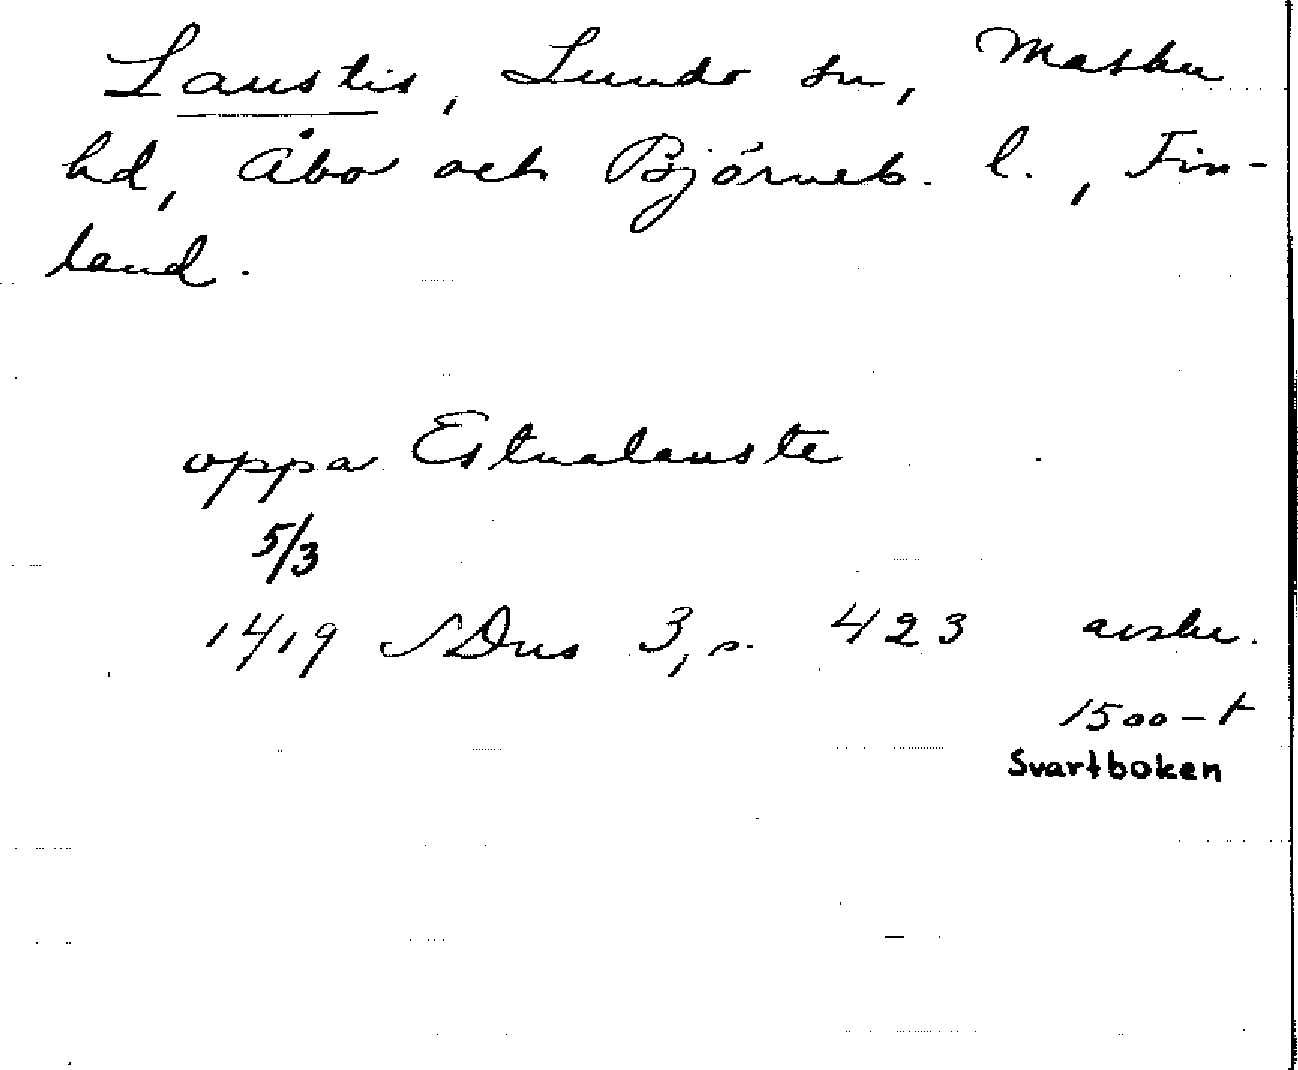 Laustis, Lundo sn, Masku
hd, Åbo och Björneb. l., Fin-
land.
oppa Estualauste
5/3
1419 SDns 3, s. 423 avskr.
1500-t
Svartboken